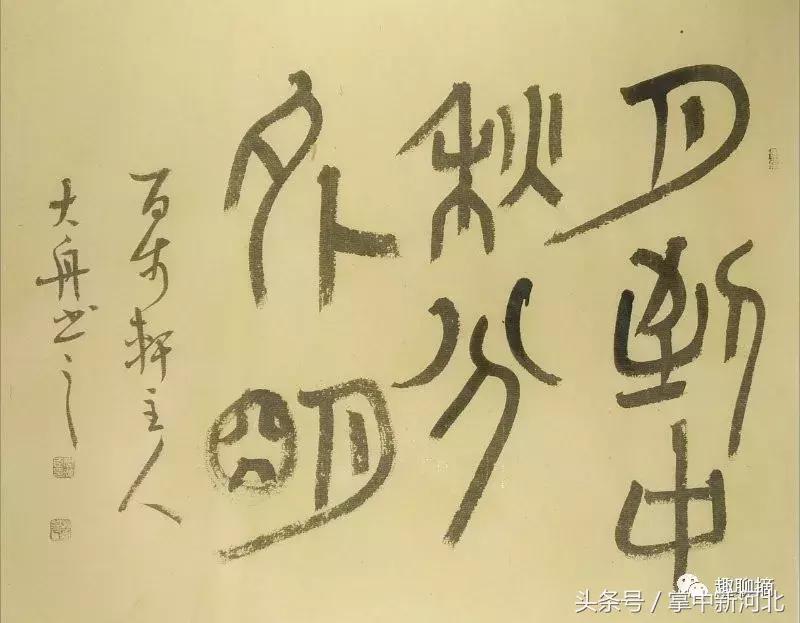 月到中
秋分
外明
百轩主人
大舟书之
趣聊摘
头条号 / 掌中新河北